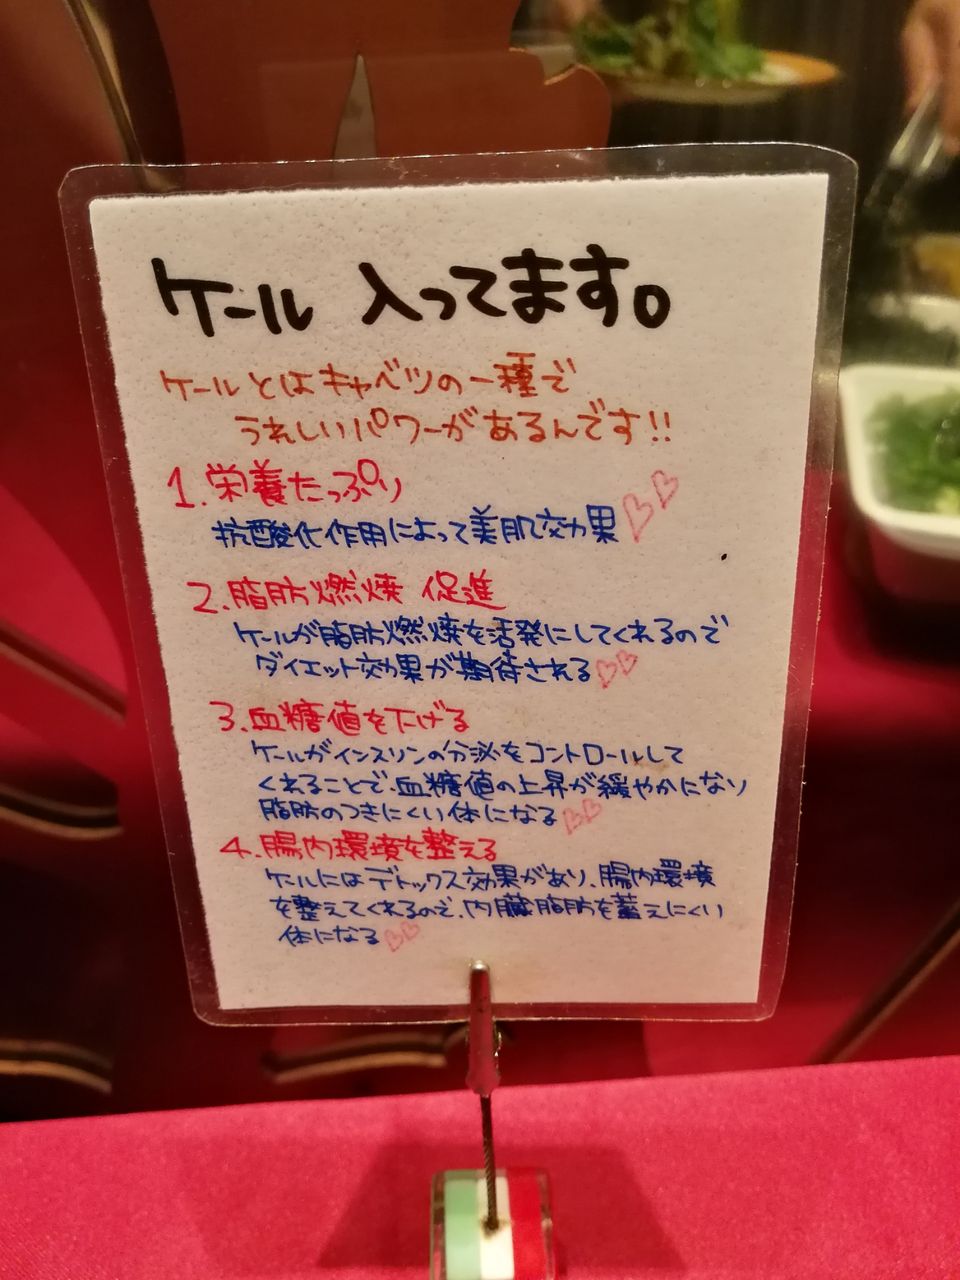 ケール 入ってます。
ケールとはキャベツの一種で
うれしいパワーがあるんです!!
1.栄養たっぷり
抗酸化作用によって美肌効果
2.脂肪燃焼 促進
ケールが脂肪燃焼を活発にしてくれるので
ダイエット効果が期待される
3.血糖値を下げる
ケールがインスリンの分泌をコントロールして
くれることで、血糖値の上昇が緩やかになり
脂肪のつきにくい体になる
4.腸内環境を整える
ケールにはデトックス効果があり、腸内環境
を整えてくれるので、内臓脂肪を蓄えにくい
体になる